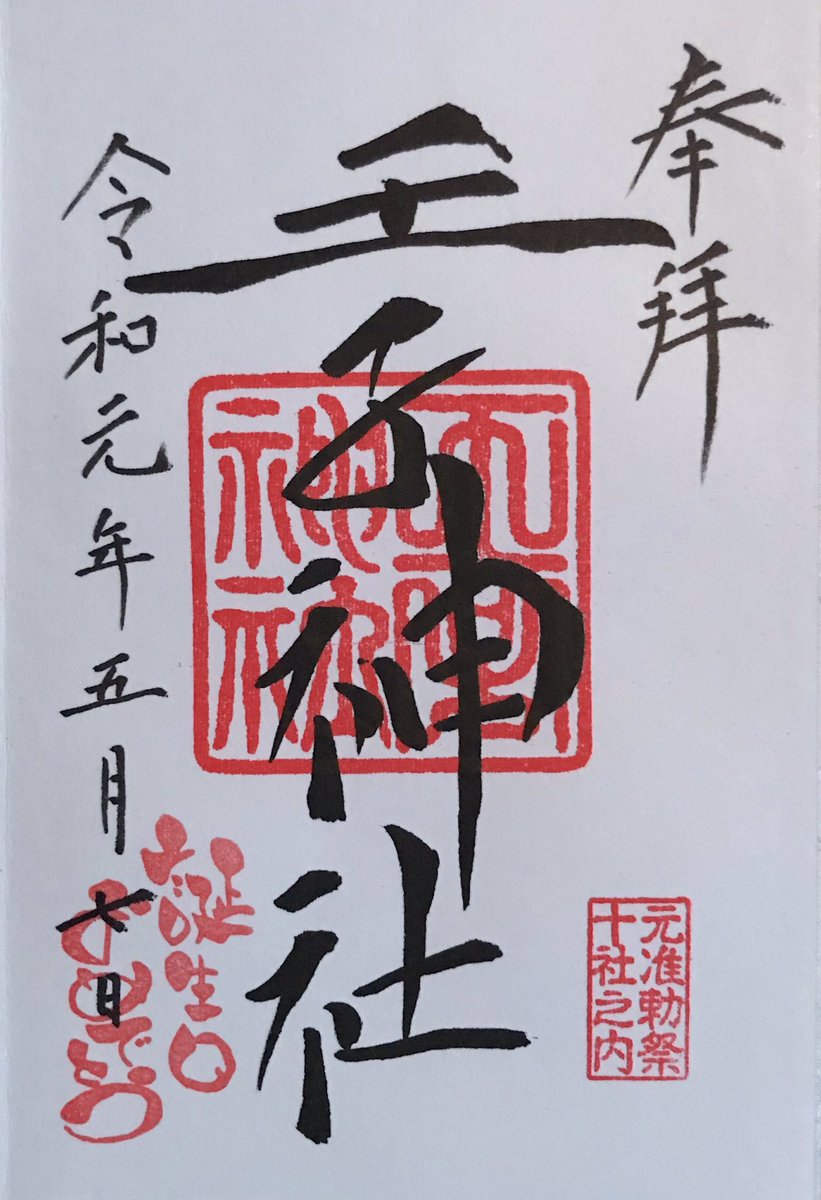 奉拝
王子神社
令和元年五月七日
元准勅祭
十社之内
お誕生日
おめでとう